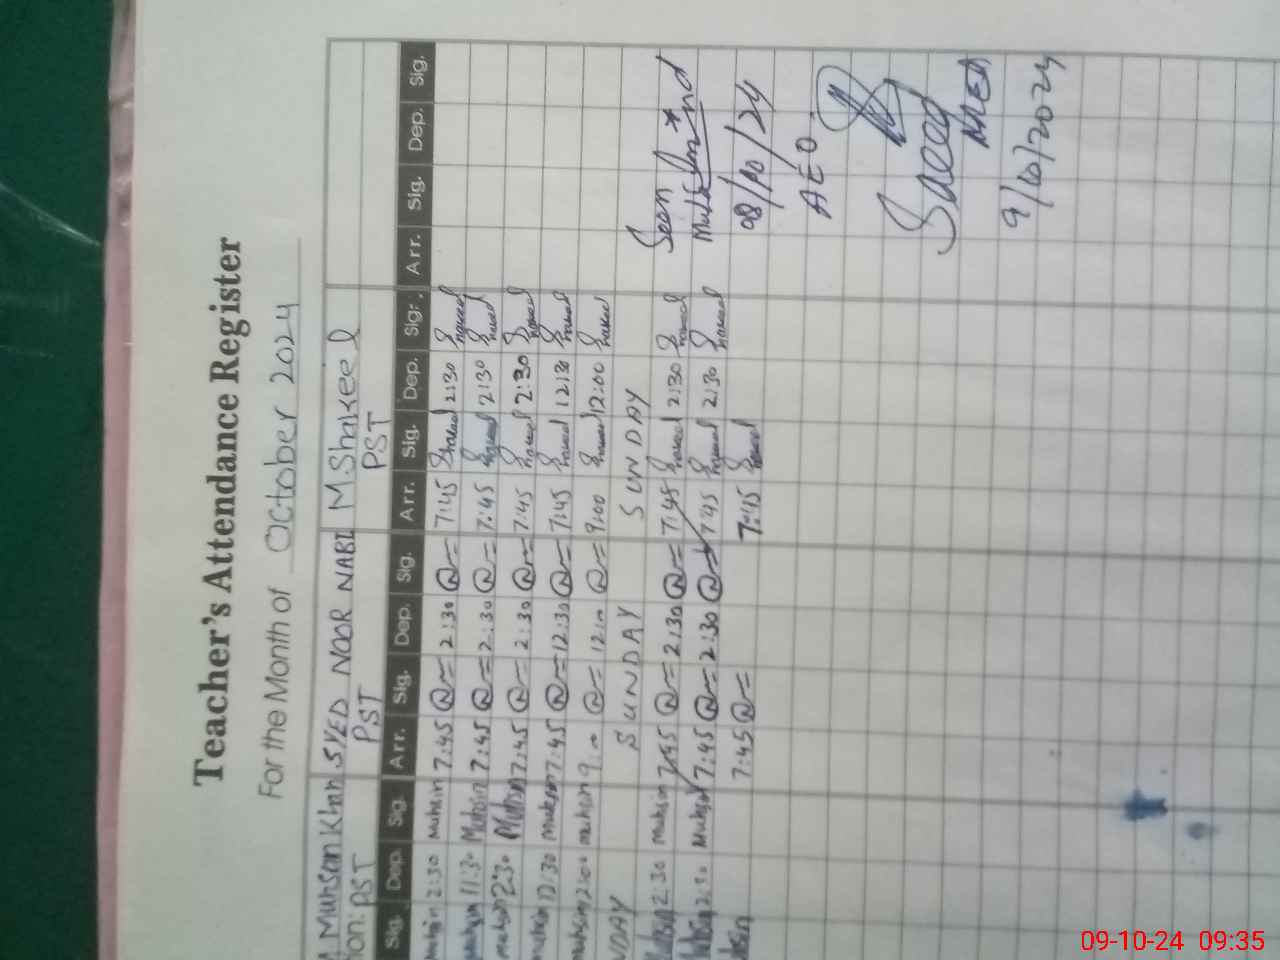 Teacher's Attendance Register
For the Month of October 2024
Muhsan Khan SYED NOOR NABI M Shakeel
PST PST PST
Sig. Dep. Sig. Arr. Sig. Dep. Sig. Arr. Sig. Dep. Sig. Arr. Sig. Dep. Sig.
2:30 Muhsin 7:45 2:30 7:45 Shakeel 2:30 Shakeel
muhsin 11:30 Muhsin 7:45 2:30 7:45 Shakeel 2:30 Shakeel
muhsin 2:30 Muhsin 7:45 2:30 7:45 Shakeel 2:30 Shakeel
muhsin 12:30 muhsin 7:45 12:30 7:45 Shakeel 12:30 Shakeel
muhsin muhsin 12:00 9:00 Shakeel 12:00 Shakeel
SUNDAY SUNDAY
Muhsin 2:30 Muhsin 7:45 2:30 7:45 Shakeel 2:30 Shakeel Seen
Muhsin 7:45 2:30 7:45 Shakeel 2:30 Shakeel
7:45 7:45 Shakeel 08/10/24
AEO
Saeed
MEA
9/10/2024
09-10-24 09:35